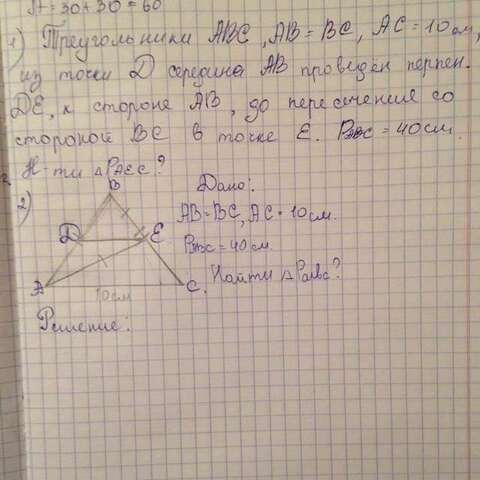 A = 30 + 30 = 60
1) Треугольники ABC, AB = BC, AC = 10 см,
из точки D середина AB проведён перпен.
DE, к стороне AB, до пересечение со
стороной BC в точке E. PABC = 40 см.
Н-ти △PAEC?
2)
B
D
E
A
10 см
C
Дано:
AB = BC, AC = 10 см.
PABC = 40 см
Найти △PABC?
Решение: